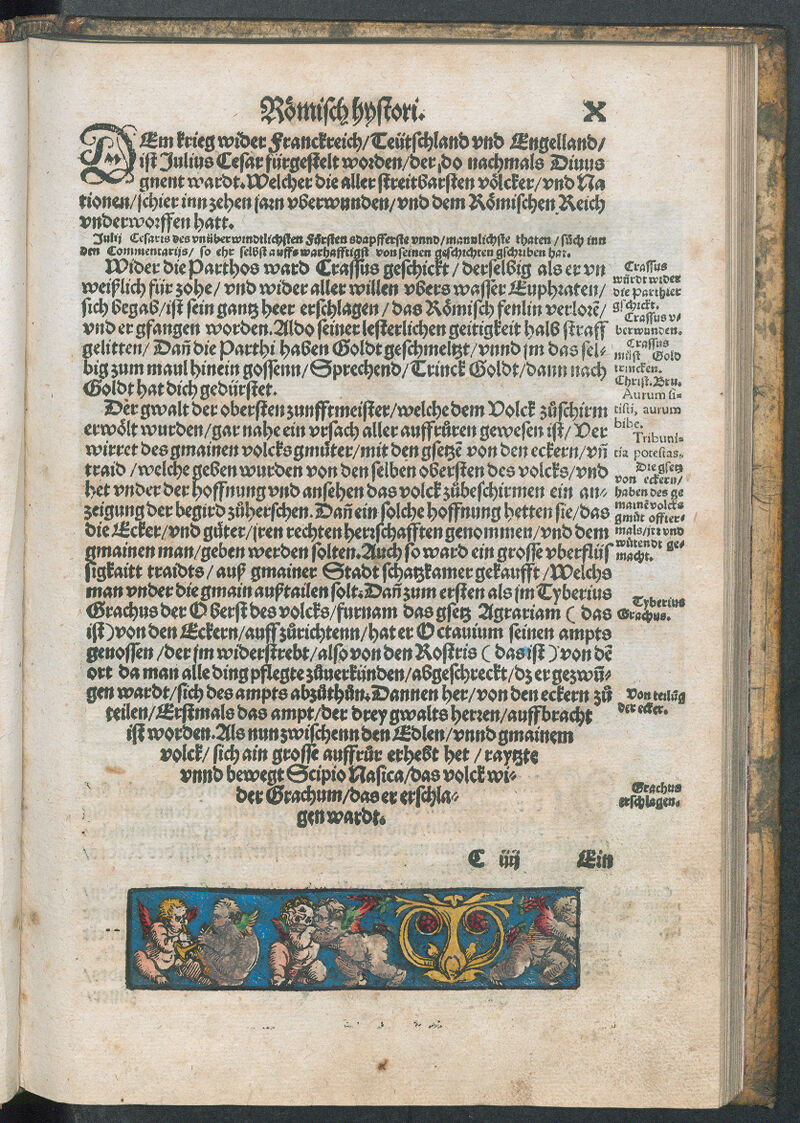 Römisch hystori. X
DEm krieg wider Franckreich/Teütschland vnd Engelland/
ist Julius Cesar fürgestelt worden/der, do nachmals Diuus
gnent wardt. Welcher die aller streitbarsten völcker/vnd Na
tionen/schier inn zehen jarn vberwunden/vnd dem Römischen Reich
vnderworffen hatt.
Julij Cesaris des vnüberwindtlichsten Fürsten dapfferste vnnd/mannlichste thaten/sůch inn
den Commentarijs/ so ehr selbst auffs warhafftigst von seinen geschichten gschriben hat.
Wider die Parthos ward Crassus geschickt/derselbig als er vn
weißlich für zohe/vnd wider aller willen vbers wasser Euphraten/
sich begab/ist sein gantz heer erschlagen/das Römisch fenlin verlorẽ/
vnd er gfangen worden. Aldo seiner lesterlichen geitigkeit halb straff
gelitten/Dañ die Parthi haben Goldt geschmeltzt/vnnd jm das sel-
big zum maul hinein gossenn/Sprechend/Trinck Goldt/dann nach
Goldt hat dich gedürstet.
Der gwalt der obersten zunfftmeister/welche dem Volck zůschirm
erwölt wurden/gar nahe ein vrsach aller auffrůren gewesen ist/Ver
wirret des gmainen volcks gmůter/mit den gsetzẽ von den eckern/vñ
traid/welche geben wurden von den selben obersten des volcks/vnd
het vnder der hoffnung vnd ansehen das volck zůbeschirmen ein an-
zeigung der begird zůherschen. Dañ ein solche hoffnung hetten sie/das
die Ecker/vnd gůter/jren rechten herrschafften genommen/vnd dem
gmainen man/geben werden solten. Auch so ward ein grosse vberflüs
sigkaitt traidts/auß gmainer Stadt schatzkamer gekaufft/Welchs
man vnder die gmain außtailen solt. Dañ zum ersten als jm Tyberius
Grachus der Oberst des volcks/furnam das gsetz Agrariam (das
ist) von den Eckern/auff zůrichtenn/hat er Octauium seinen ampts
genossen/der jm widerstrebt/also von den Rostris (das ist) von dẽ
ort da man alle ding pflegte zůuerkünden/abgeschreckt/dz er gezwů-
gen wardt/sich des ampts abzůthůn. Dannen her/von den eckern zů
teilen/Erstmals das ampt/der drey gwalts herren/auffbracht
ist worden. Als nun zwischenn den Edlen/vnnd gmainem
volck/sich ain grosse auffrůr erhebt het/raytzte
vnnd bewegt Scipio Nasica/das volck wi-
der Grachum/das er erschla-
gen wardt.
Crassus
würdt wider
die Parthier
gschickt.
Crassus v-
berwunden.
Crassus
můst Gold
trincken.
Christ. Bru.
Aurum si-
tisti, aurum
bibe.
Tribuni-
cia potestas.
Die gsetz
von eckern/
haben des ge
mainẽ volcks
gmůt offter-
mals/jrr vnd
wůtendt ge-
macht.
Tyberius
Grachus.
Von teilũg
der ecker.
Grachus
erschlagen.
C iiij Ein